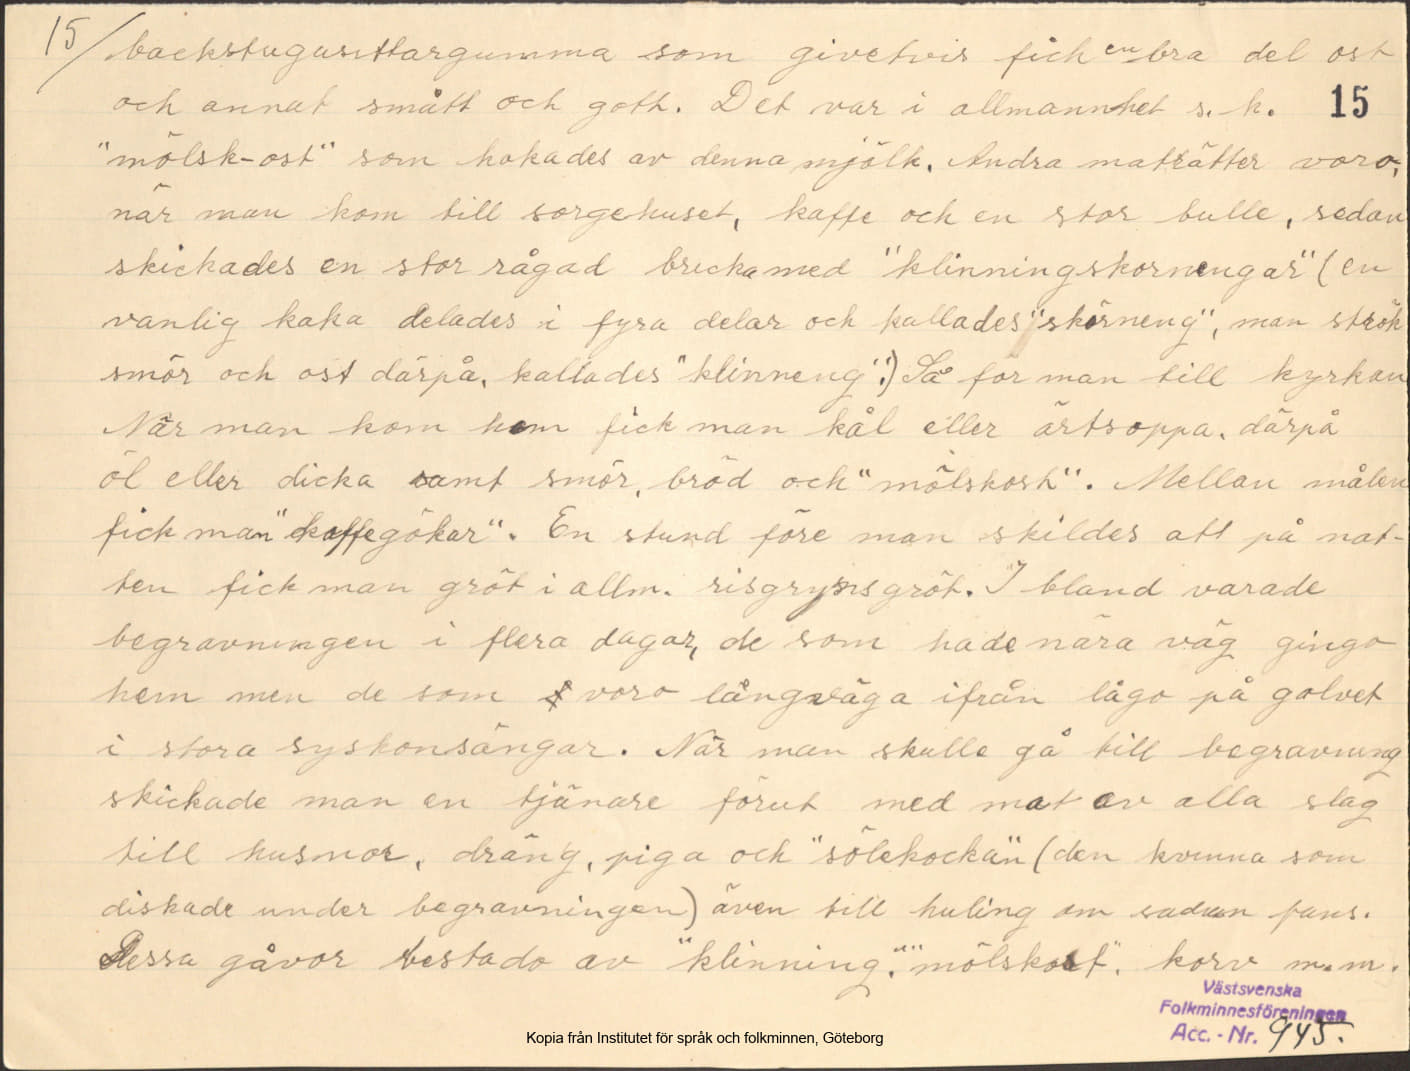 15/
backstugusittargumma som givetvis fick en bra del ost
och annat smått och gott. Det var i allmannhet s. k.
15
"mölsk-ost" som kokades av denna mjölk. Andra maträtter voro,
när man kom till sorgehuset, kaffe och en stor bulle, sedan
skickades en stor rågad bricka med "klinningskornengar" (en
vanlig kaka delades i fyra delar och kallades "skörneng", man strök
smör och ost därpå, kallades "klinneng".) Så for man till kyrkan
När man kom hem fick man kål eller ärtsoppa, därpå
öl eller dicka samt smör, bröd och "mölskost". Mellan målen
fick man "kaffegökar". En stund före man skildes att på nat-
ten fick man gröt i allm. risgrynsgröt. I bland varade
begravningen i flera dagar, de som hade nära väg gingo
hem men de som voro långväga ifrån lågo på golvet
i stora syskonsängar. När man skulle gå till begravning
skickade man en tjänare förut med mat av alla slag
till husmor, dräng, piga och "sölekockan" (den kvinna som
diskade under begravningen) även till huling om sadan fans.
Dessa gåvor bestado av "klinning", "mölskost", korv m.m.
Västsvenska
Folkminnesföreningen
Acc. - Nr. 945.
Kopia från Institutet för språk och folkminnen, Göteborg